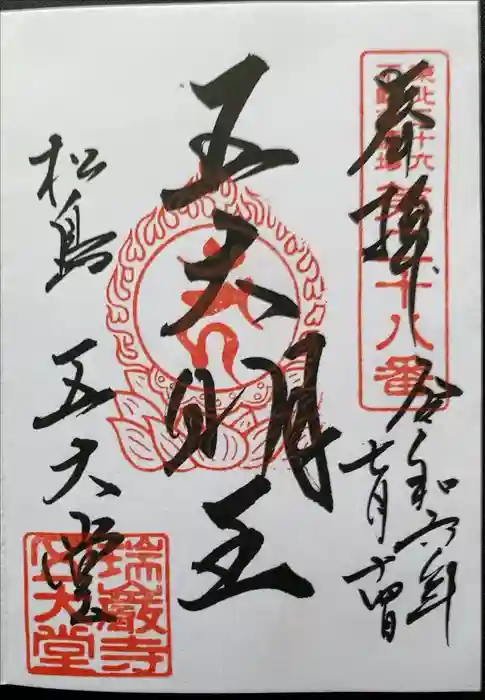 奉拝
令和六年
七月十四日
東北三十六
不動尊霊場
第二十八番
五大明王
松島 五大堂
瑞巖寺
五大堂